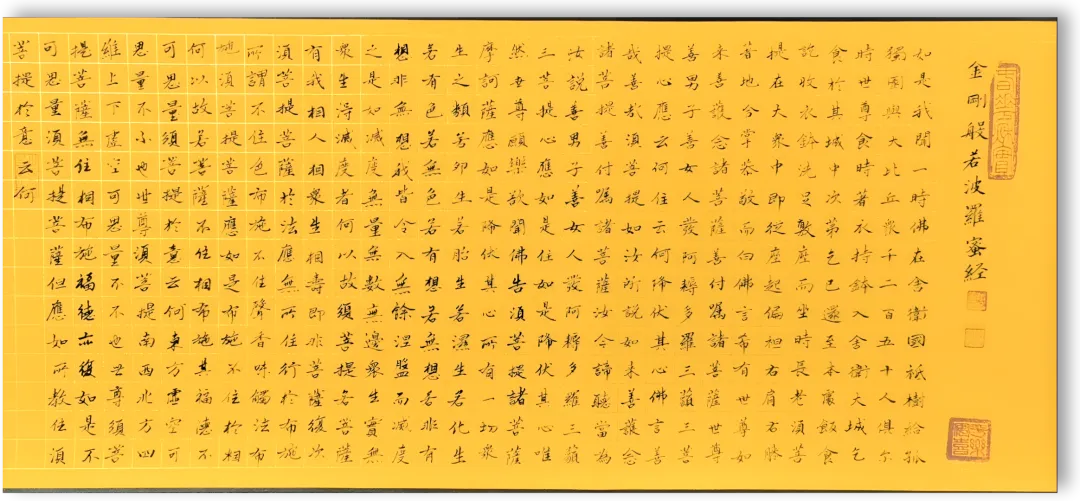 金剛般若波羅蜜經
如是我聞一時佛在舍衛國祇樹給孤
獨園與大比丘衆千二百五十人俱尔
時世尊食時著衣持鉢入舍衛大城乞
食於其城中次第乞已還至本處飯食
訖收衣鉢洗足敷座而坐時長老須菩
提在大衆中即從座起偏袒右肩右膝
著地合掌恭敬而白佛言希有世尊如
来善護念諸菩薩善付囑諸菩薩世尊
善男子善女人發阿耨多羅三藐三菩
提心應云何住云何降伏其心佛言善
哉善哉須菩提如汝所説如来善護念
諸菩提善付囑諸菩薩汝今諦聽當為
汝説善男子善女人發阿耨多羅三藐
三菩提心應如是住如是降伏其心唯
然世尊願樂欲聞佛告須菩提諸菩薩
摩訶薩應如是降伏其心所有一切衆
生之類若卵生若胎生若濕生若化生
若有色若無色若有想若無想若非有
想非無想我皆令入無餘涅盤而滅度
之是如滅度無量無數無邊衆生實無
衆生得滅度者何以故須菩提若菩薩
有我相人相衆生相壽即非菩薩復次
須菩提菩薩於法應無所住行於布施
所謂不住色布施不住聲香味觸法布
施須菩提菩薩應如是布施不住於相
何以故若菩薩不住相布施其福德不
可思量須菩提於意云何東方虛空可
思量不小也世尊須菩提南西北方四
維上下虛空可思量不不也世尊須菩
提菩薩無住相布施福德亦復如是不
可思量須菩提菩薩但應如所教住須
菩提於意云何